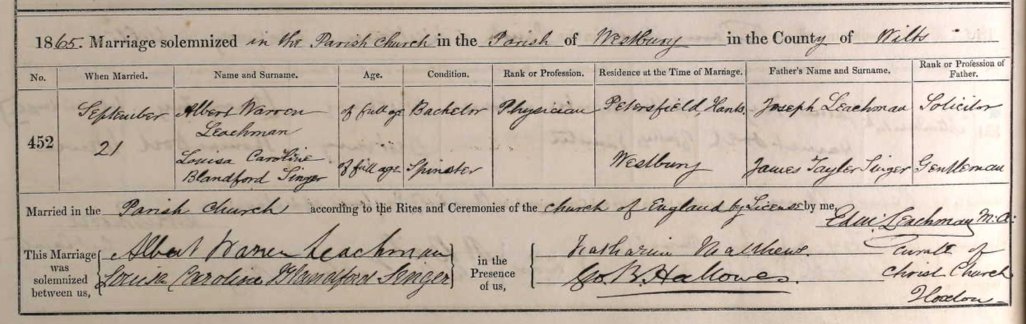 1865. Marriage solemnized in the Parish Church in the Parish of Westbury in the County of Wilts
No. When Married. Name and Surname. Age. Condition. Rank or Profession. Residence at the Time of Marriage. Father's Name and Surname. Rank or Profession of Father.
452 September 21
Albert Warren Leachman of full age Bachelor Physician Petersfield, Hants Joseph Leachman Solicitor
Louisa Caroline Blandford Singer of full age Spinster Westbury James Taylor Singer Gentleman
Married in the Parish Church according to the Rites and Ceremonies of the Church of England by License by me, Edm. Leachman M.A.
Curate of
Christ Church
Hoxton
This Marriage was solemnized between us,
Albert Warren Leachman
Louisa Caroline Blandford Singer
in the Presence of us,
Matthews.
Geo. B. Hallowes.